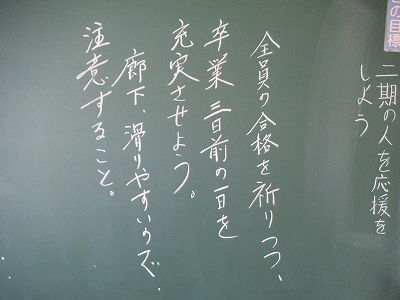 の目標
二期の人を応援を
しよう
全員の合格を祈りつつ、
卒業三日前の一日を
充実させよう。
廊下、滑りやすいので、
注意すること。